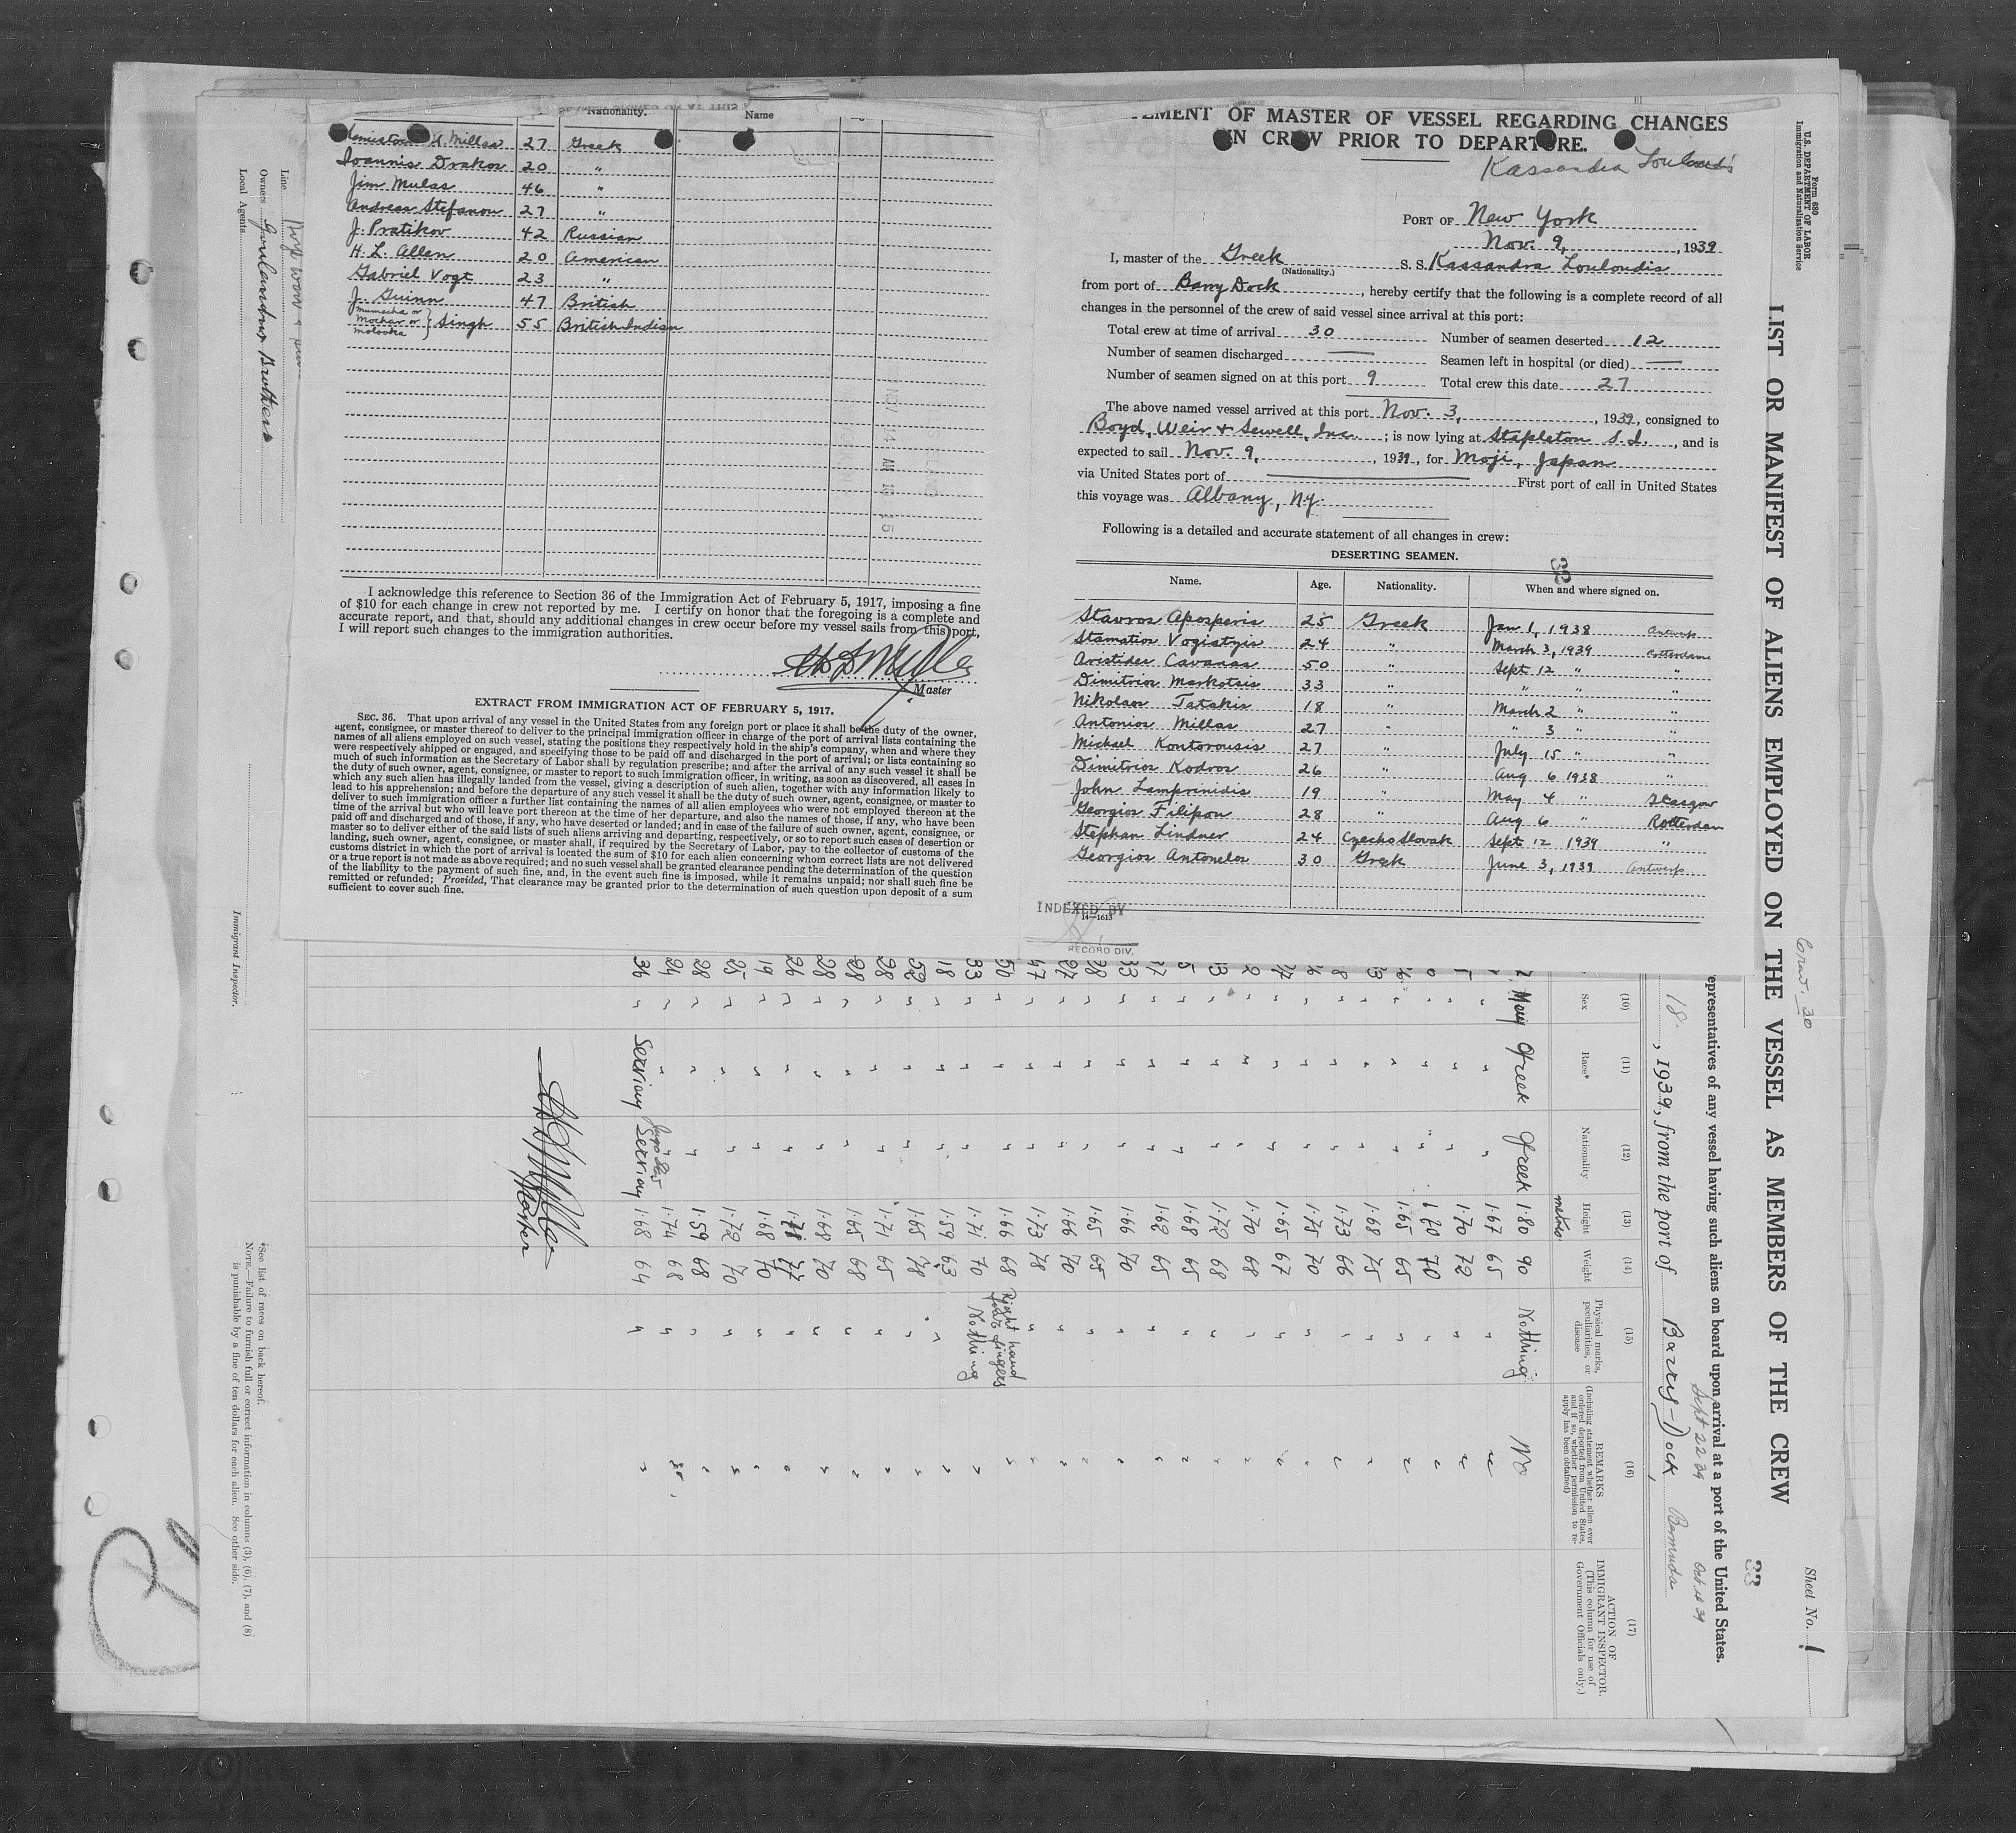 Nationality.
Name
Millas 27 Greek
Ioannis Drakos 20 "
Jim Mulas 46 "
Andreas Stefanou 27 "
J. Pratikov 42 Russian
H. L. Allen 20 American
Gabriel Vogt 23 "
J. Guinn 47 British
Mumscha or
Mochar or } Singh 55 British Indian
Molooka
I acknowledge this reference to Section 36 of the Immigration Act of February 5, 1917, imposing a fine
of $10 for each change in crew not reported by me. I certify on honor that the foregoing is a complete and
accurate report, and that, should any additional changes in crew occur before my vessel sails from this port,
I will report such changes to the immigration authorities.
Master
EXTRACT FROM IMMIGRATION ACT OF FEBRUARY 5, 1917.
SEC. 36. That upon arrival of any vessel in the United States from any foreign port or place it shall be the duty of the owner,
agent, consignee, or master thereof to deliver to the principal immigration officer in charge of the port of arrival lists containing the
names of all aliens employed on such vessel, stating the positions they respectively hold in the ship's company, when and where they
were respectively shipped or engaged, and specifying those to be paid off and discharged in the port of arrival; or lists containing so
much of such information as the Secretary of Labor shall by regulation prescribe; and after the arrival of any such vessel it shall be
the duty of such owner, agent, consignee, or master to report to such immigration officer, in writing, as soon as discovered, all cases in
which any such alien has illegally landed from the vessel, giving a description of such alien, together with any information likely to
lead to his apprehension; and before the departure of any such vessel it shall be the duty of such owner, agent, consignee, or master to
deliver to such immigration officer a further list containing the names of all alien employees who were not employed thereon at the
time of the arrival but who will leave port thereon at the time of her departure, and also the names of those, if any, who have been
paid off and discharged and of those, if any, who have deserted or landed; and in case of the failure of such owner, agent, consignee, or
master so to deliver either of the said lists of such aliens arriving and departing, respectively, or so to report such cases of desertion or
landing, such owner, agent, consignee, or master shall, if required by the Secretary of Labor, pay to the collector of customs of the
customs district in which the port of arrival is located the sum of $10 for each alien concerning whom correct lists are not delivered
or a true report is not made as above required; and no such vessel shall be granted clearance pending the determination of the question
of the liability to the payment of such fine, and, in the event such fine is imposed, while it remains unpaid; nor shall such fine be
remitted or refunded; Provided, That clearance may be granted prior to the determination of such question upon deposit of a sum
sufficient to cover such fine.
EMENT OF MASTER OF VESSEL REGARDING CHANGES
IN CREW PRIOR TO DEPARTURE.
Kassandra Louloudis
PORT OF New York
Nov. 9, , 1939
I, master of the Greek S. S. Kassandra Louloudis
(Nationality.)
from port of Barry Dock , hereby certify that the following is a complete record of all
changes in the personnel of the crew of said vessel since arrival at this port:
Total crew at time of arrival 30 Number of seamen deserted 12
Number of seamen discharged — Seamen left in hospital (or died) —
Number of seamen signed on at this port 9 Total crew this date 27
The above named vessel arrived at this port Nov. 3, , 1939, consigned to
Boyd, Weir & Sewell, Inc. ; is now lying at Stapleton S.I. , and is
expected to sail Nov. 9, , 1939, for Moji, Japan
via United States port of — First port of call in United States
this voyage was Albany, N.Y.
Following is a detailed and accurate statement of all changes in crew:
DESERTING SEAMEN.
32
Name. Age. Nationality. When and where signed on.
Stavros Aposperis 25 Greek Jan 1, 1938 Antwerp
Stamatios Vogiatzis 24 " March 3, 1939 Rotterdam
Aristides Cavanas 50 " Sept 12 " "
Dimitrios Markotsis 33 " " " "
Nikolaos Tatakis 18 " March 2 " "
Antonios Millas 27 " " 3 " "
Michael Kontorousis 27 " July 15 " "
Dimitrios Kodros 26 " Aug 6 1938 "
John Lamprinidis 19 " May 4 " Glasgow
Georgios Filipou 28 " Aug 6 " Rotterdam
Stephan Lindner 24 Czechoslovak Sept 12 1939 "
Georgios Antonelos 30 Greek June 3, 1939 Antwerp
INDEXED BY
14—1613
RECORD DIV.
Form 680
U. S. DEPARTMENT OF LABOR
Immigration and Naturalization Service
LIST OR MANIFEST OF ALIENS EMPLOYED ON THE VESSEL AS MEMBERS OF THE CREW
Sheet No. 1
33
epresentatives of any vessel having such aliens on board upon arrival at a port of the United States.
Sept 22 39
18 , 1939, from the port of Barry-Dock, Bermuda
(10) (11) (12) (13) (14) (15) (16) (17)
Sex Race* Nationality Height Weight
metres
Physical marks, peculiarities, or disease
REMARKS
(Including statement whether alien ever ordered deported from United States, and if so, whether permission to reapply has been obtained)
ACTION OF IMMIGRANT INSPECTOR
(This column for use of Government Officials only.)
Greek Greek 1.80 90 Nothing No
" " 1.67 65
" " 1.70 72
" " 1.70 70
" " 1.65 65
" " 1.68 75
" " 1.73 66
" " 1.75 70
" " 1.65 67
" " 1.70 68
" " 1.72 68
" " 1.68 65
" " 1.62 65
33 " " 1.66 70
28 " " 1.65 65
27 " " 1.66 70
47 " " 1.73 78
50 " " 1.66 68 Right hand fingers
33 " " 1.71 70 Nothing
18 " " 1.59 63
52 " " 1.65 78
28 " " 1.71 65
28 " " 1.65 68
28 " " 1.68 70
26 " " 1.78 77
19 " " 1.68 70
25 " " 1.72 70
28 " " 1.59 68
24 " 1.74 68
36 1.68 64
Master
Line
Owners Goulandris Brothers
Local Agents
Immigrant Inspector.
*See list of races on back hereof.
NOTE.—Failure to furnish full or correct information in columns (3), (6), (7), and (8)
is punishable by a fine of ten dollars for each alien. See other side.